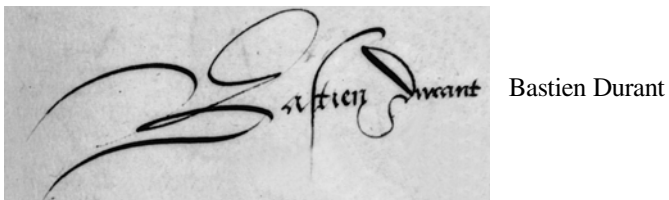 Bastien Durant Bastien Durant